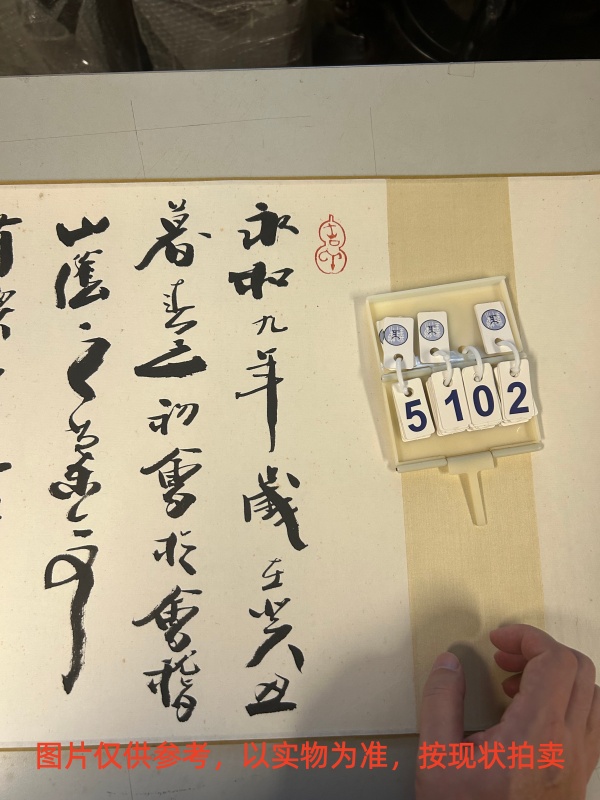 永和九年歲在癸丑
暮春之初會於會稽
山陰之蘭亭
5102
图片仅供参考，以实物为准，按现状拍卖